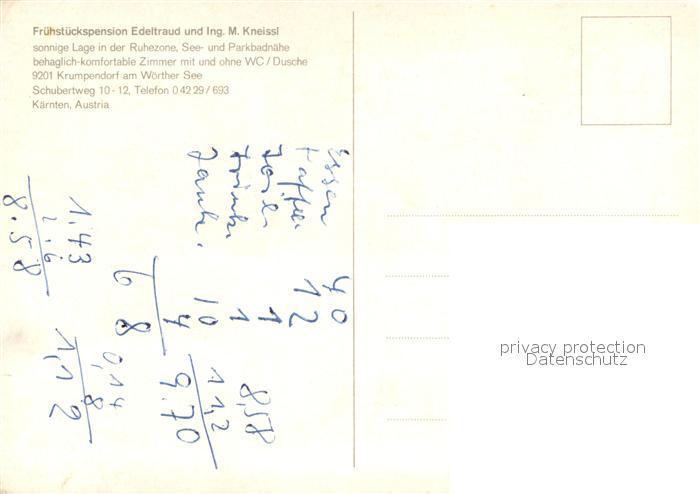 Frühstückspension Edeltraud und Ing. M. Kneissl
sonnige Lage in der Ruhezone, See- und Parkbadnähe
behaglich-komfortable Zimmer mit und ohne WC / Dusche
9201 Krumpendorf am Wörther See
Schubertweg 10 - 12, Telefon 0 42 29 / 693
Kärnten, Austria
Essen 40
12
1
1
10
4
68
8,58
11,2
9.70
0,14
8
1,12
1.43
8.58
privacy protection
Datenschutz